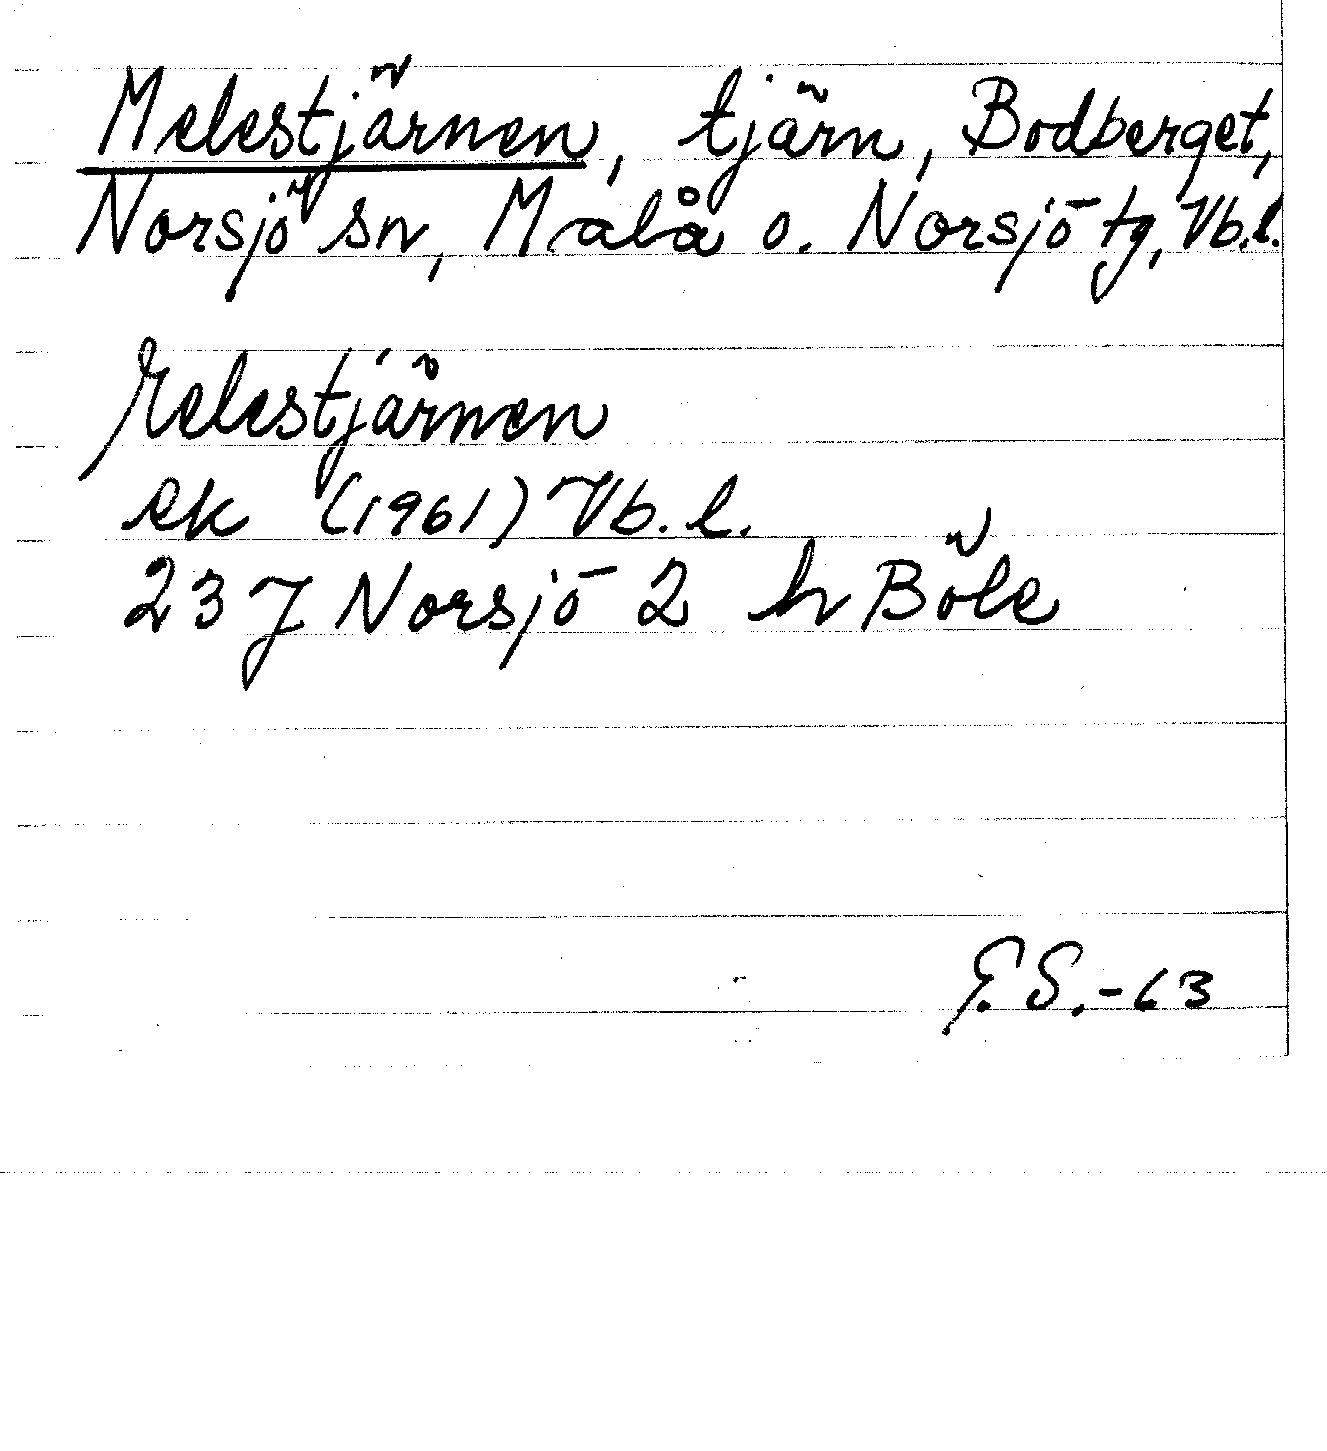 Melestjärnen, tjärn, Bodberget,
Norsjö sn, Malå o. Norsjö tg, Vb.l.
Melestjärnen
ek (1961) Vb. l.
23 J Norsjö 2 h Böle
E.S.-63